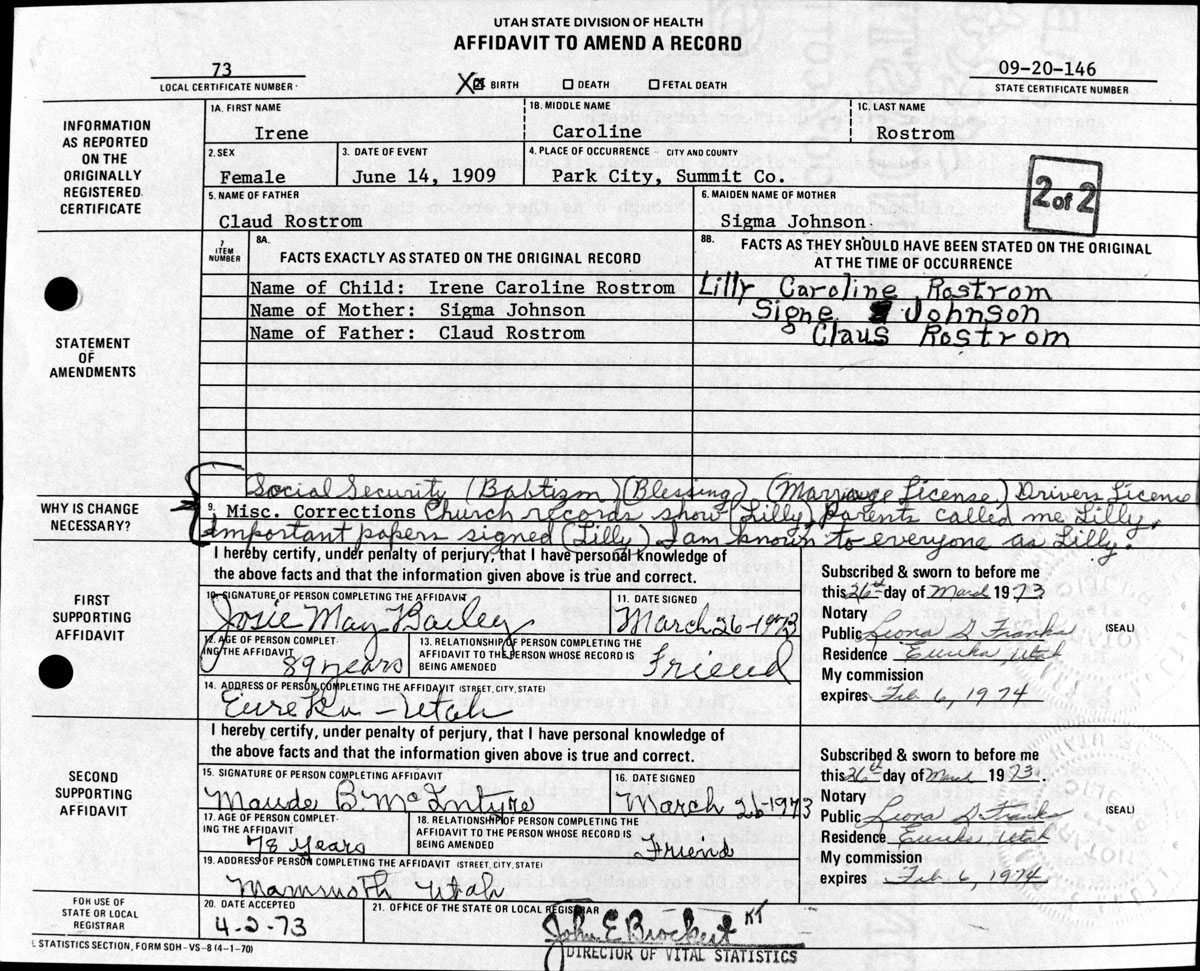 UTAH STATE DIVISION OF HEALTH
AFFIDAVIT TO AMEND A RECORD
73
LOCAL CERTIFICATE NUMBER
X BIRTH DEATH FETAL DEATH
09-20-146
STATE CERTIFICATE NUMBER
INFORMATION
AS REPORTED
ON THE
ORIGINALLY
REGISTERED
CERTIFICATE
1A. FIRST NAME
Irene
1B. MIDDLE NAME
Caroline
1C. LAST NAME
Rostrom
2. SEX
Female
3. DATE OF EVENT
June 14, 1909
4. PLACE OF OCCURRENCE - CITY AND COUNTY
Park City, Summit Co.
5. NAME OF FATHER
Claud Rostrom
6. MAIDEN NAME OF MOTHER
Sigma Johnson
2 of 2
STATEMENT
OF
AMENDMENTS
7
ITEM
NUMBER
8A.
FACTS EXACTLY AS STATED ON THE ORIGINAL RECORD
8B. FACTS AS THEY SHOULD HAVE BEEN STATED ON THE ORIGINAL
AT THE TIME OF OCCURRENCE
Name of Child: Irene Caroline Rostrom
Lilly Caroline Rostrom
Name of Mother: Sigma Johnson
Signe Johnson
Name of Father: Claud Rostrom
Claus Rostrom
WHY IS CHANGE
NECESSARY?
Social Security (Babtizm) (Blessing) (Marriage License) Drivers License
9. Misc. Corrections Church records show (Lilly) Parents called me Lilly,
important papers signed (Lilly) I am known to everyone as Lilly.
FIRST
SUPPORTING
AFFIDAVIT
I hereby certify, under penalty of perjury, that I have personal knowledge of
the above facts and that the information given above is true and correct.
10. SIGNATURE OF PERSON COMPLETING THE AFFIDAVIT
Josie May Bailey
11. DATE SIGNED
March 26-1973
12. AGE OF PERSON COMPLET-
ING THE AFFIDAVIT
89 years
13. RELATIONSHIP OF PERSON COMPLETING THE
AFFIDAVIT TO THE PERSON WHOSE RECORD IS
BEING AMENDED
Friend
14. ADDRESS OF PERSON COMPLETING THE AFFIDAVIT (STREET, CITY, STATE)
Eureka - Utah
Subscribed & sworn to before me
this 26th day of March 1973
Notary
Public Leona G Franks (SEAL)
Residence Eureka, Utah
My commission
expires Feb 6, 1974
SECOND
SUPPORTING
AFFIDAVIT
I hereby certify, under penalty of perjury, that I have personal knowledge of
the above facts and that the information given above is true and correct.
15. SIGNATURE OF PERSON COMPLETING AFFIDAVIT
Maude B. McIntyre
16. DATE SIGNED
March 26-1973
17. AGE OF PERSON COMPLET-
ING THE AFFIDAVIT
78 years
18. RELATIONSHIP OF PERSON COMPLETING THE
AFFIDAVIT TO THE PERSON WHOSE RECORD IS
BEING AMENDED
Friend
19. ADDRESS OF PERSON COMPLETING THE AFFIDAVIT (STREET, CITY, STATE)
Mammoth Utah
Subscribed & sworn to before me
this 26th day of March 1973.
Notary
Public Leona G Franks (SEAL)
Residence Eureka, Utah
My commission
expires Feb. 6, 1974
FOR USE OF
STATE OR LOCAL
REGISTRAR
20. DATE ACCEPTED
4-2-73
21. OFFICE OF THE STATE OR LOCAL REGISTRAR
John E Brockert KT
DIRECTOR OF VITAL STATISTICS
L STATISTICS SECTION, FORM SDH-VS-8 (4-1-70)